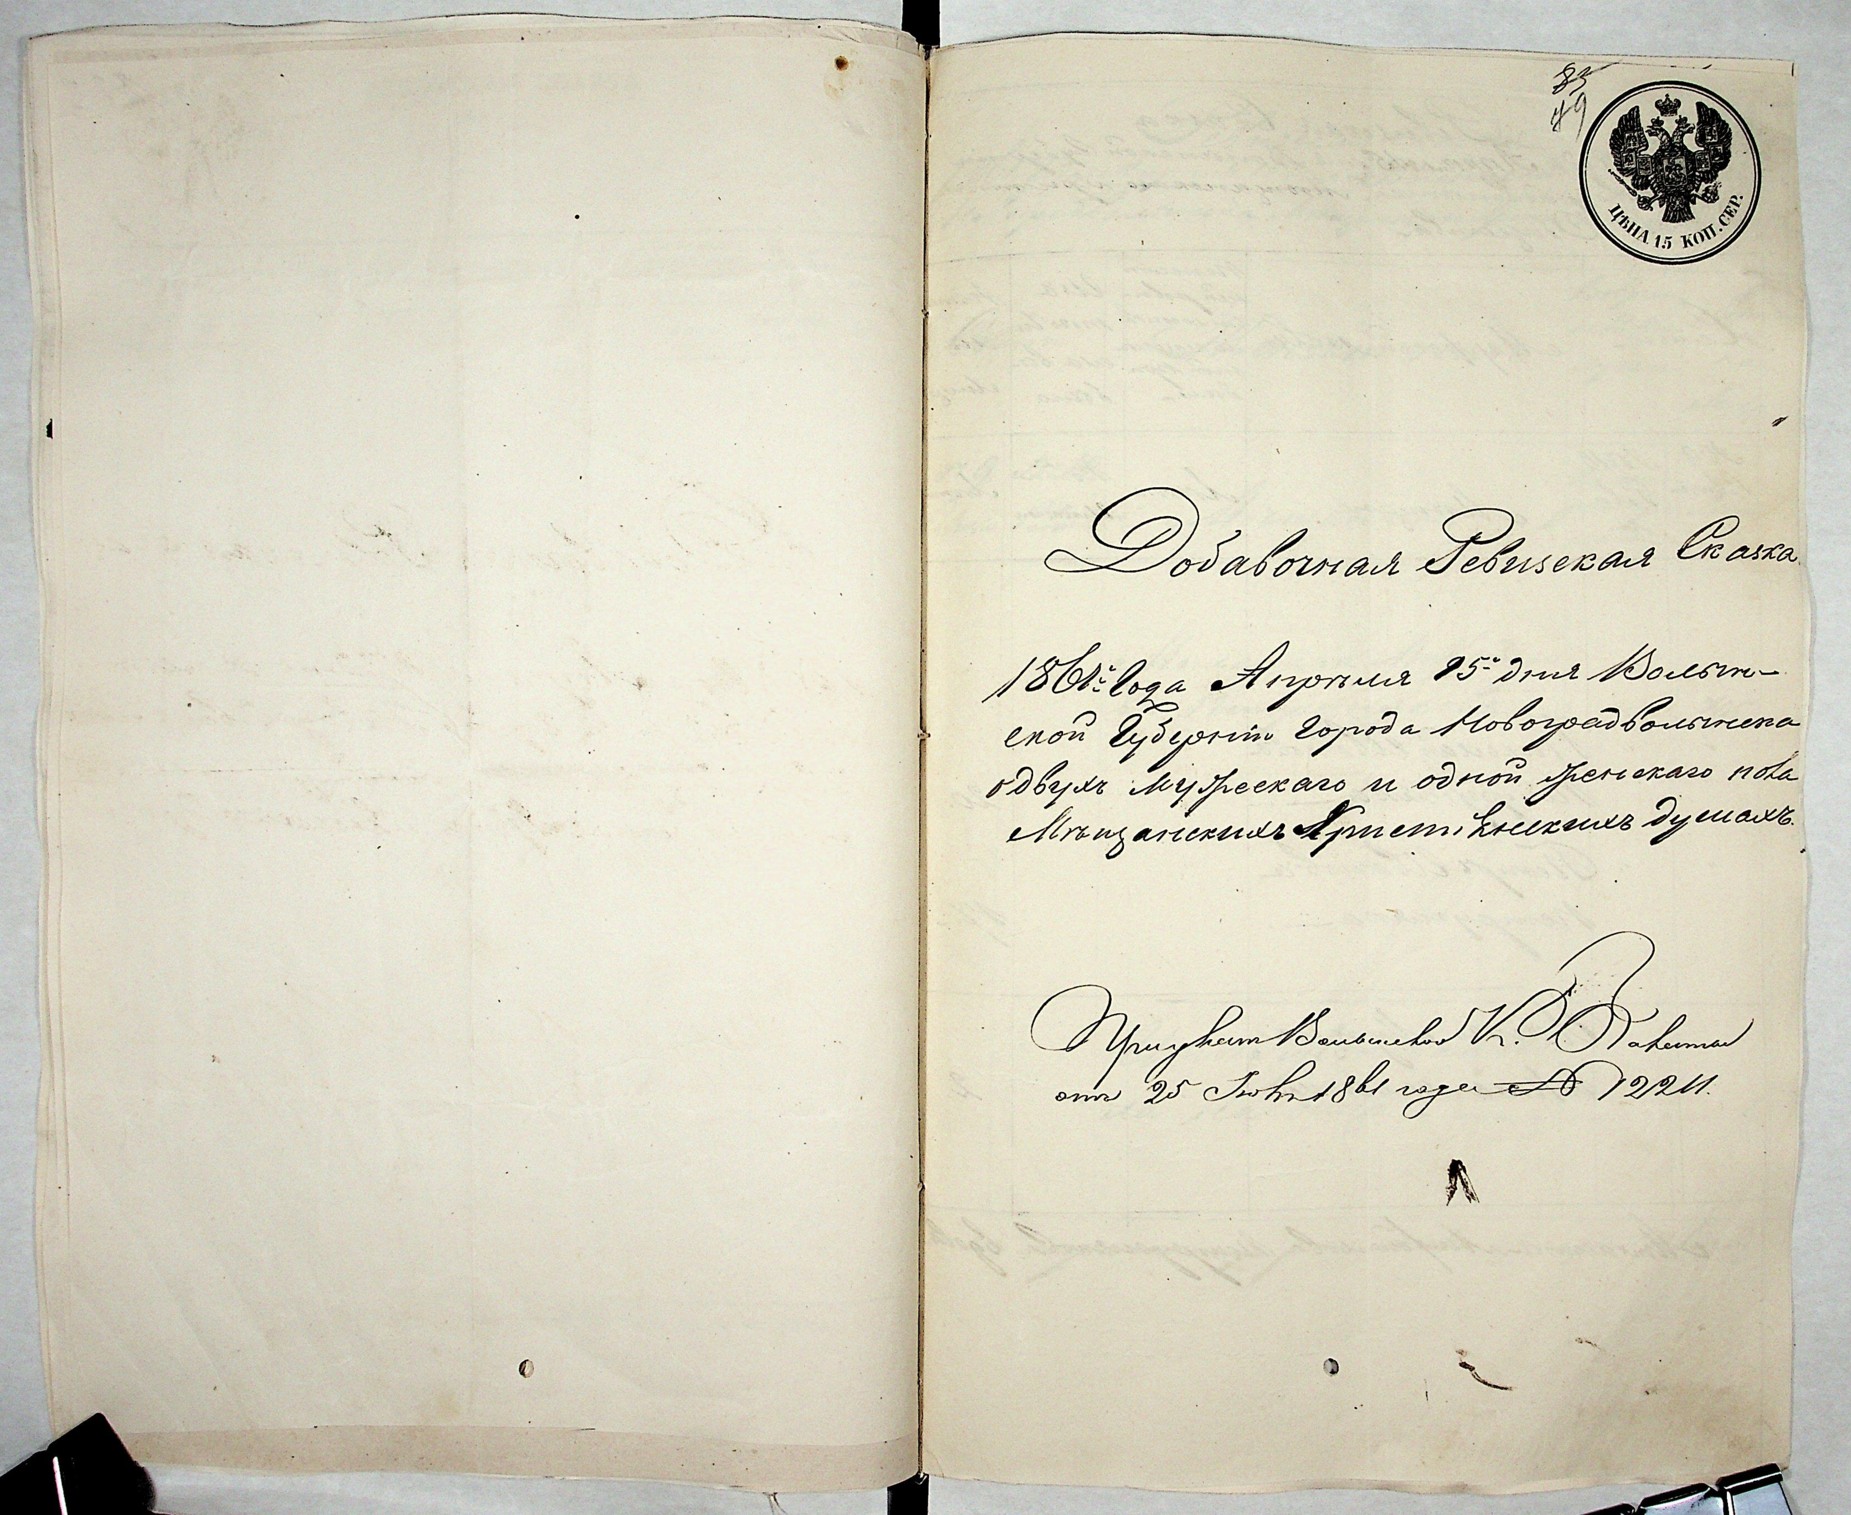 85
79
ЦѢНА 15 КОП. СЕР.
Добавочная Ревизская Сказка
1861го Года Апрѣля 15го дня Волын-
ской Губерніи Города Новоградволынска
о двухъ мужескаго и одной женскаго пола
Мѣщанскихъ Христіянскихъ душахъ.
При указѣ Волынской К. П.
отъ 25 1861 года № 12211.